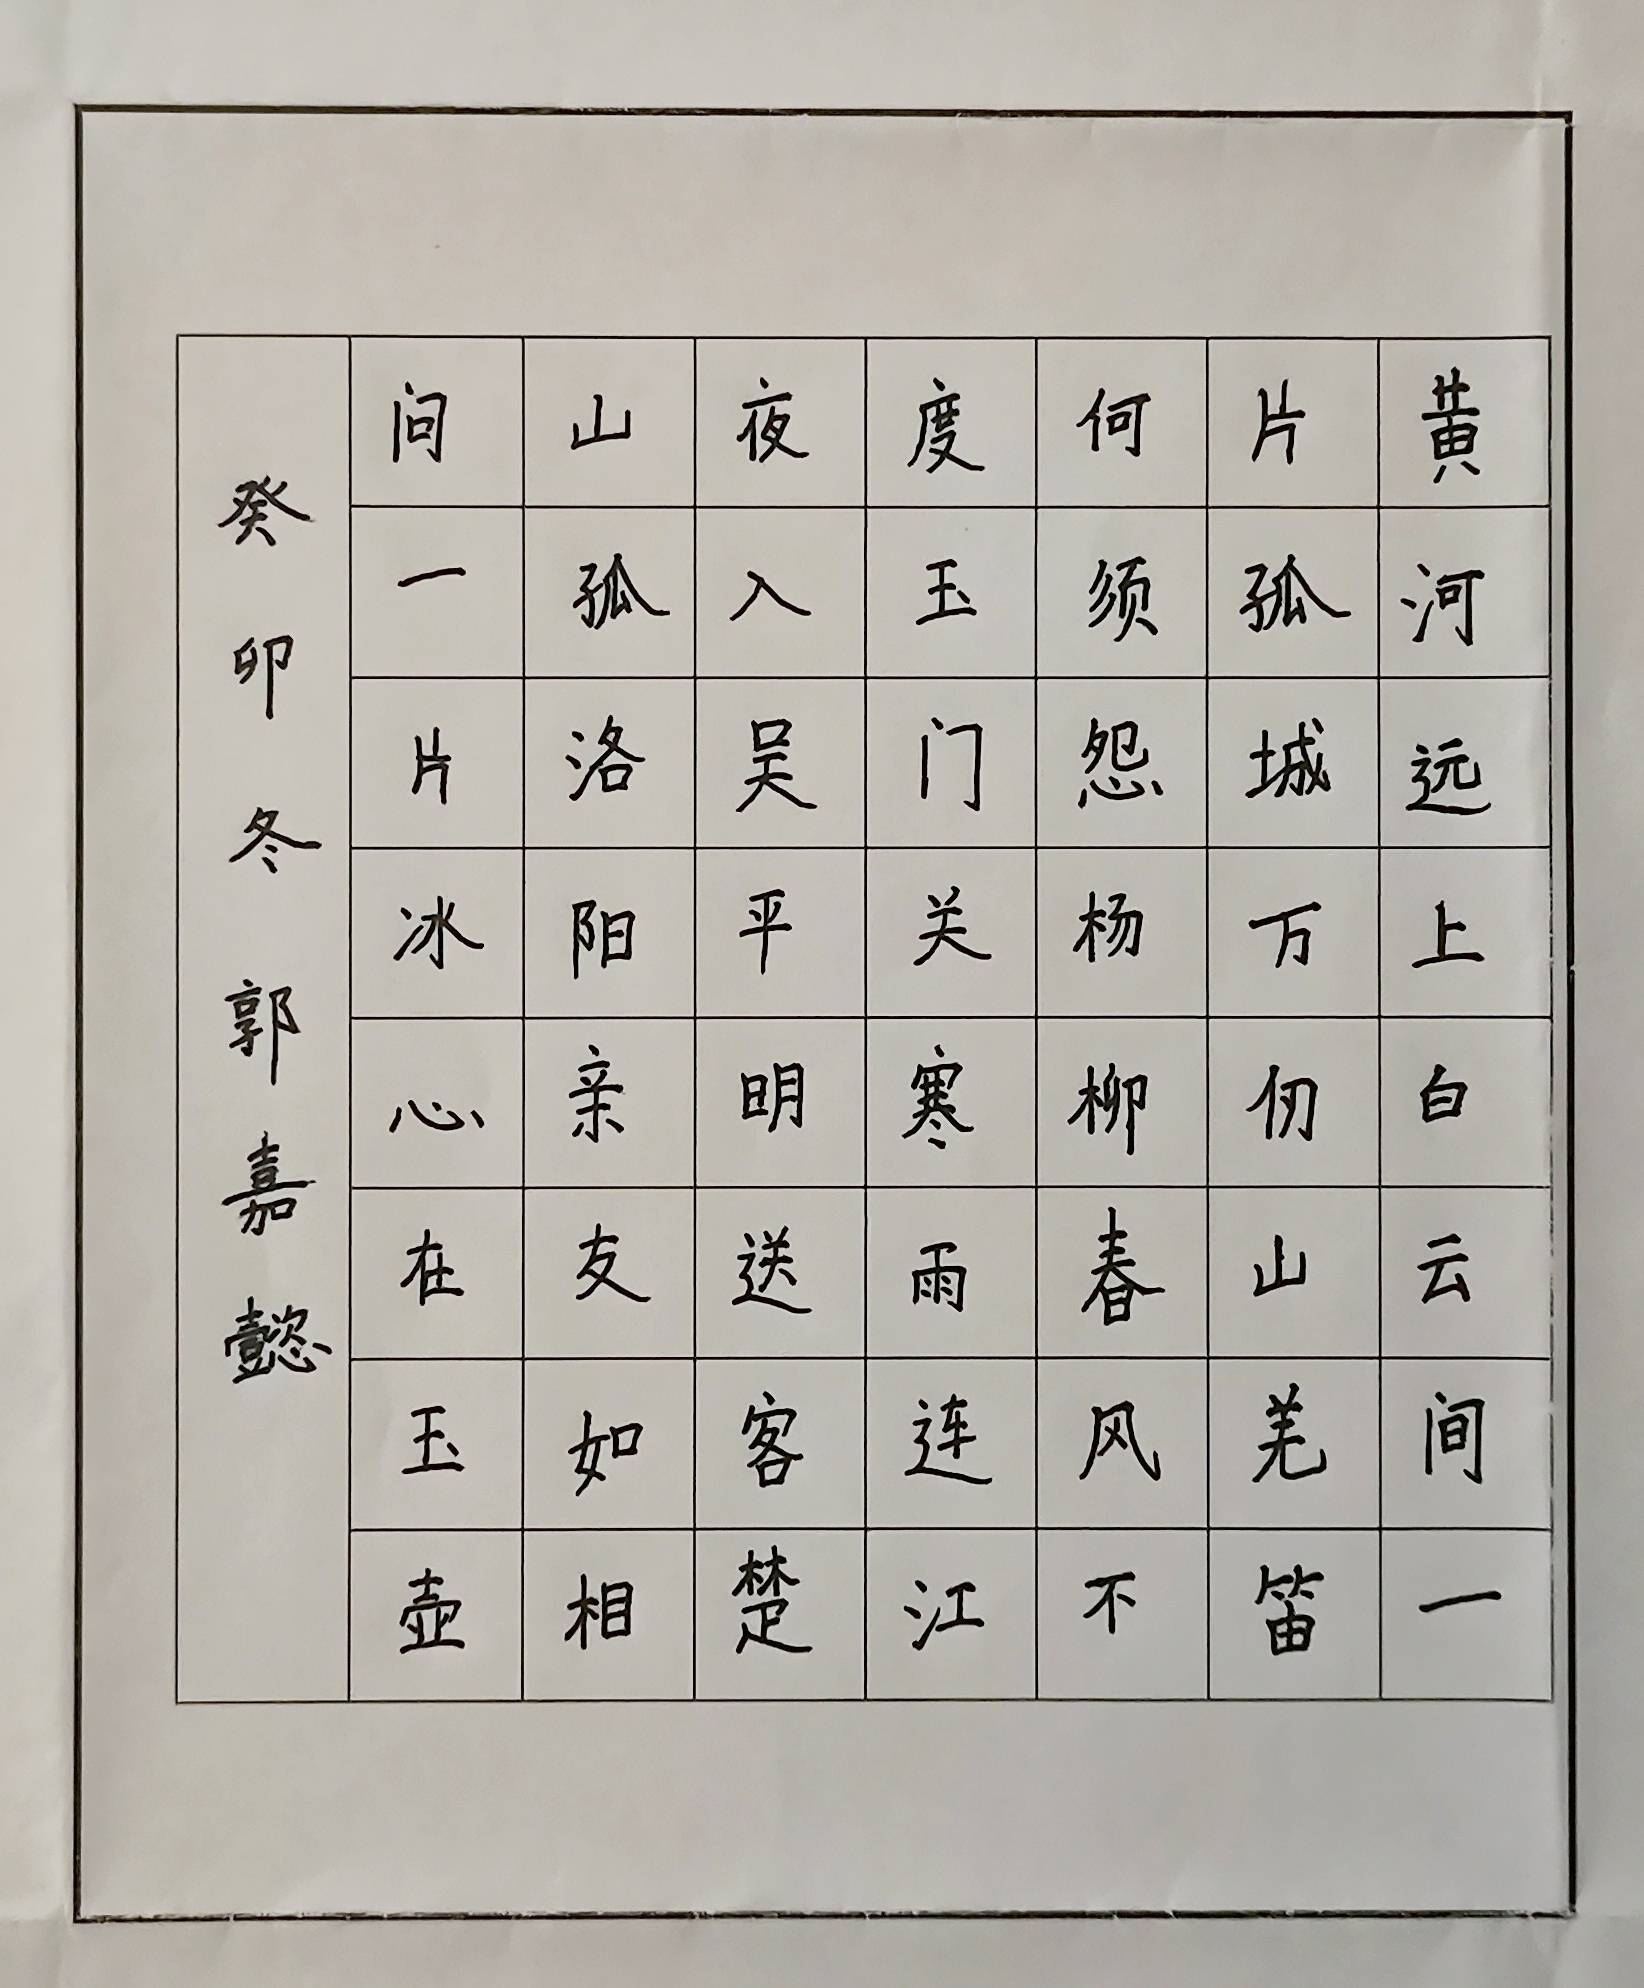 黄河远上白云间一
片孤城万仞山羌笛
何须怨杨柳春风不
度玉门关寒雨连江
夜入吴平明送客楚
山孤洛阳亲友如相
问一片冰心在玉壶
癸卯冬郭嘉懿